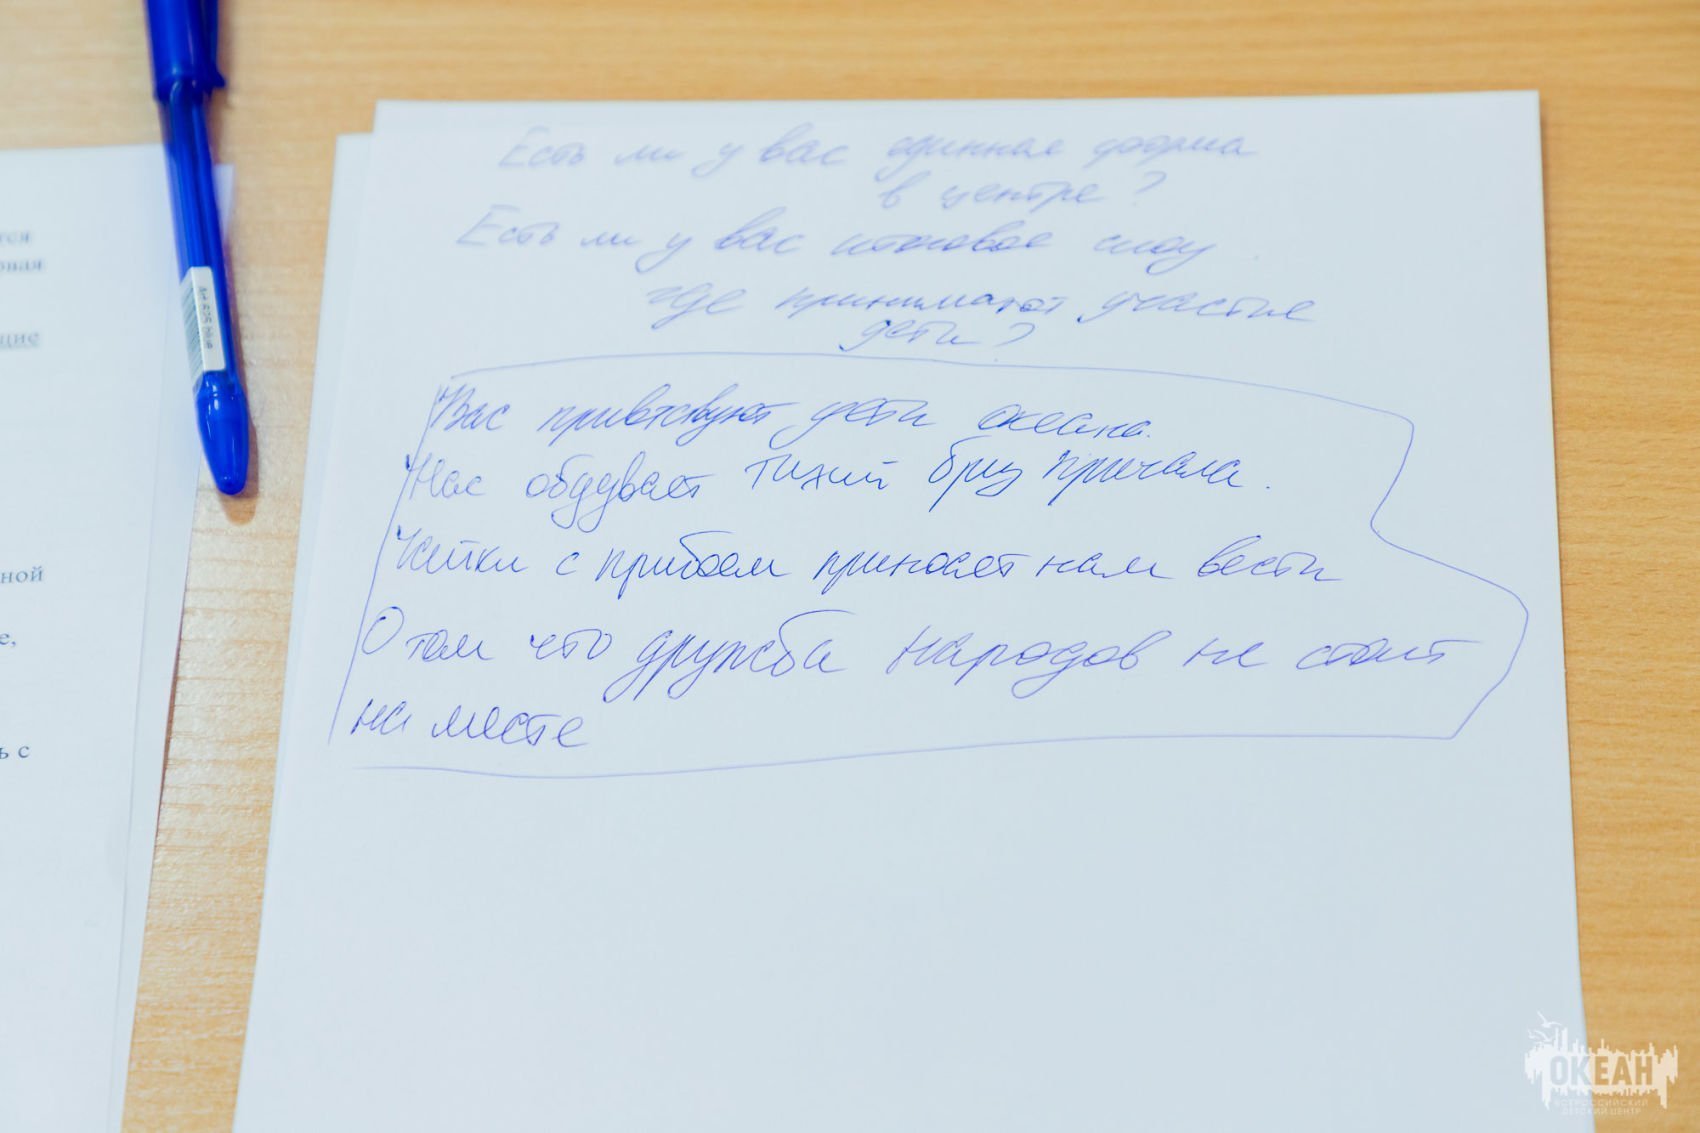 Есть ли у вас единная форма
в центре?
Есть ли у вас итоговое шоу
где принимают участие
дети?
Вас приветствуют дети океана.
Нас обдувает тихий бриз причала.
Чайки с прибоем приносят нам вести
О том что дружба народов не стоит
на месте
тся
овая
щие
ной
е,
ь с
ОКЕАН
ВСЕРОССИЙСКИЙ
ДЕТСКИЙ ЦЕНТР